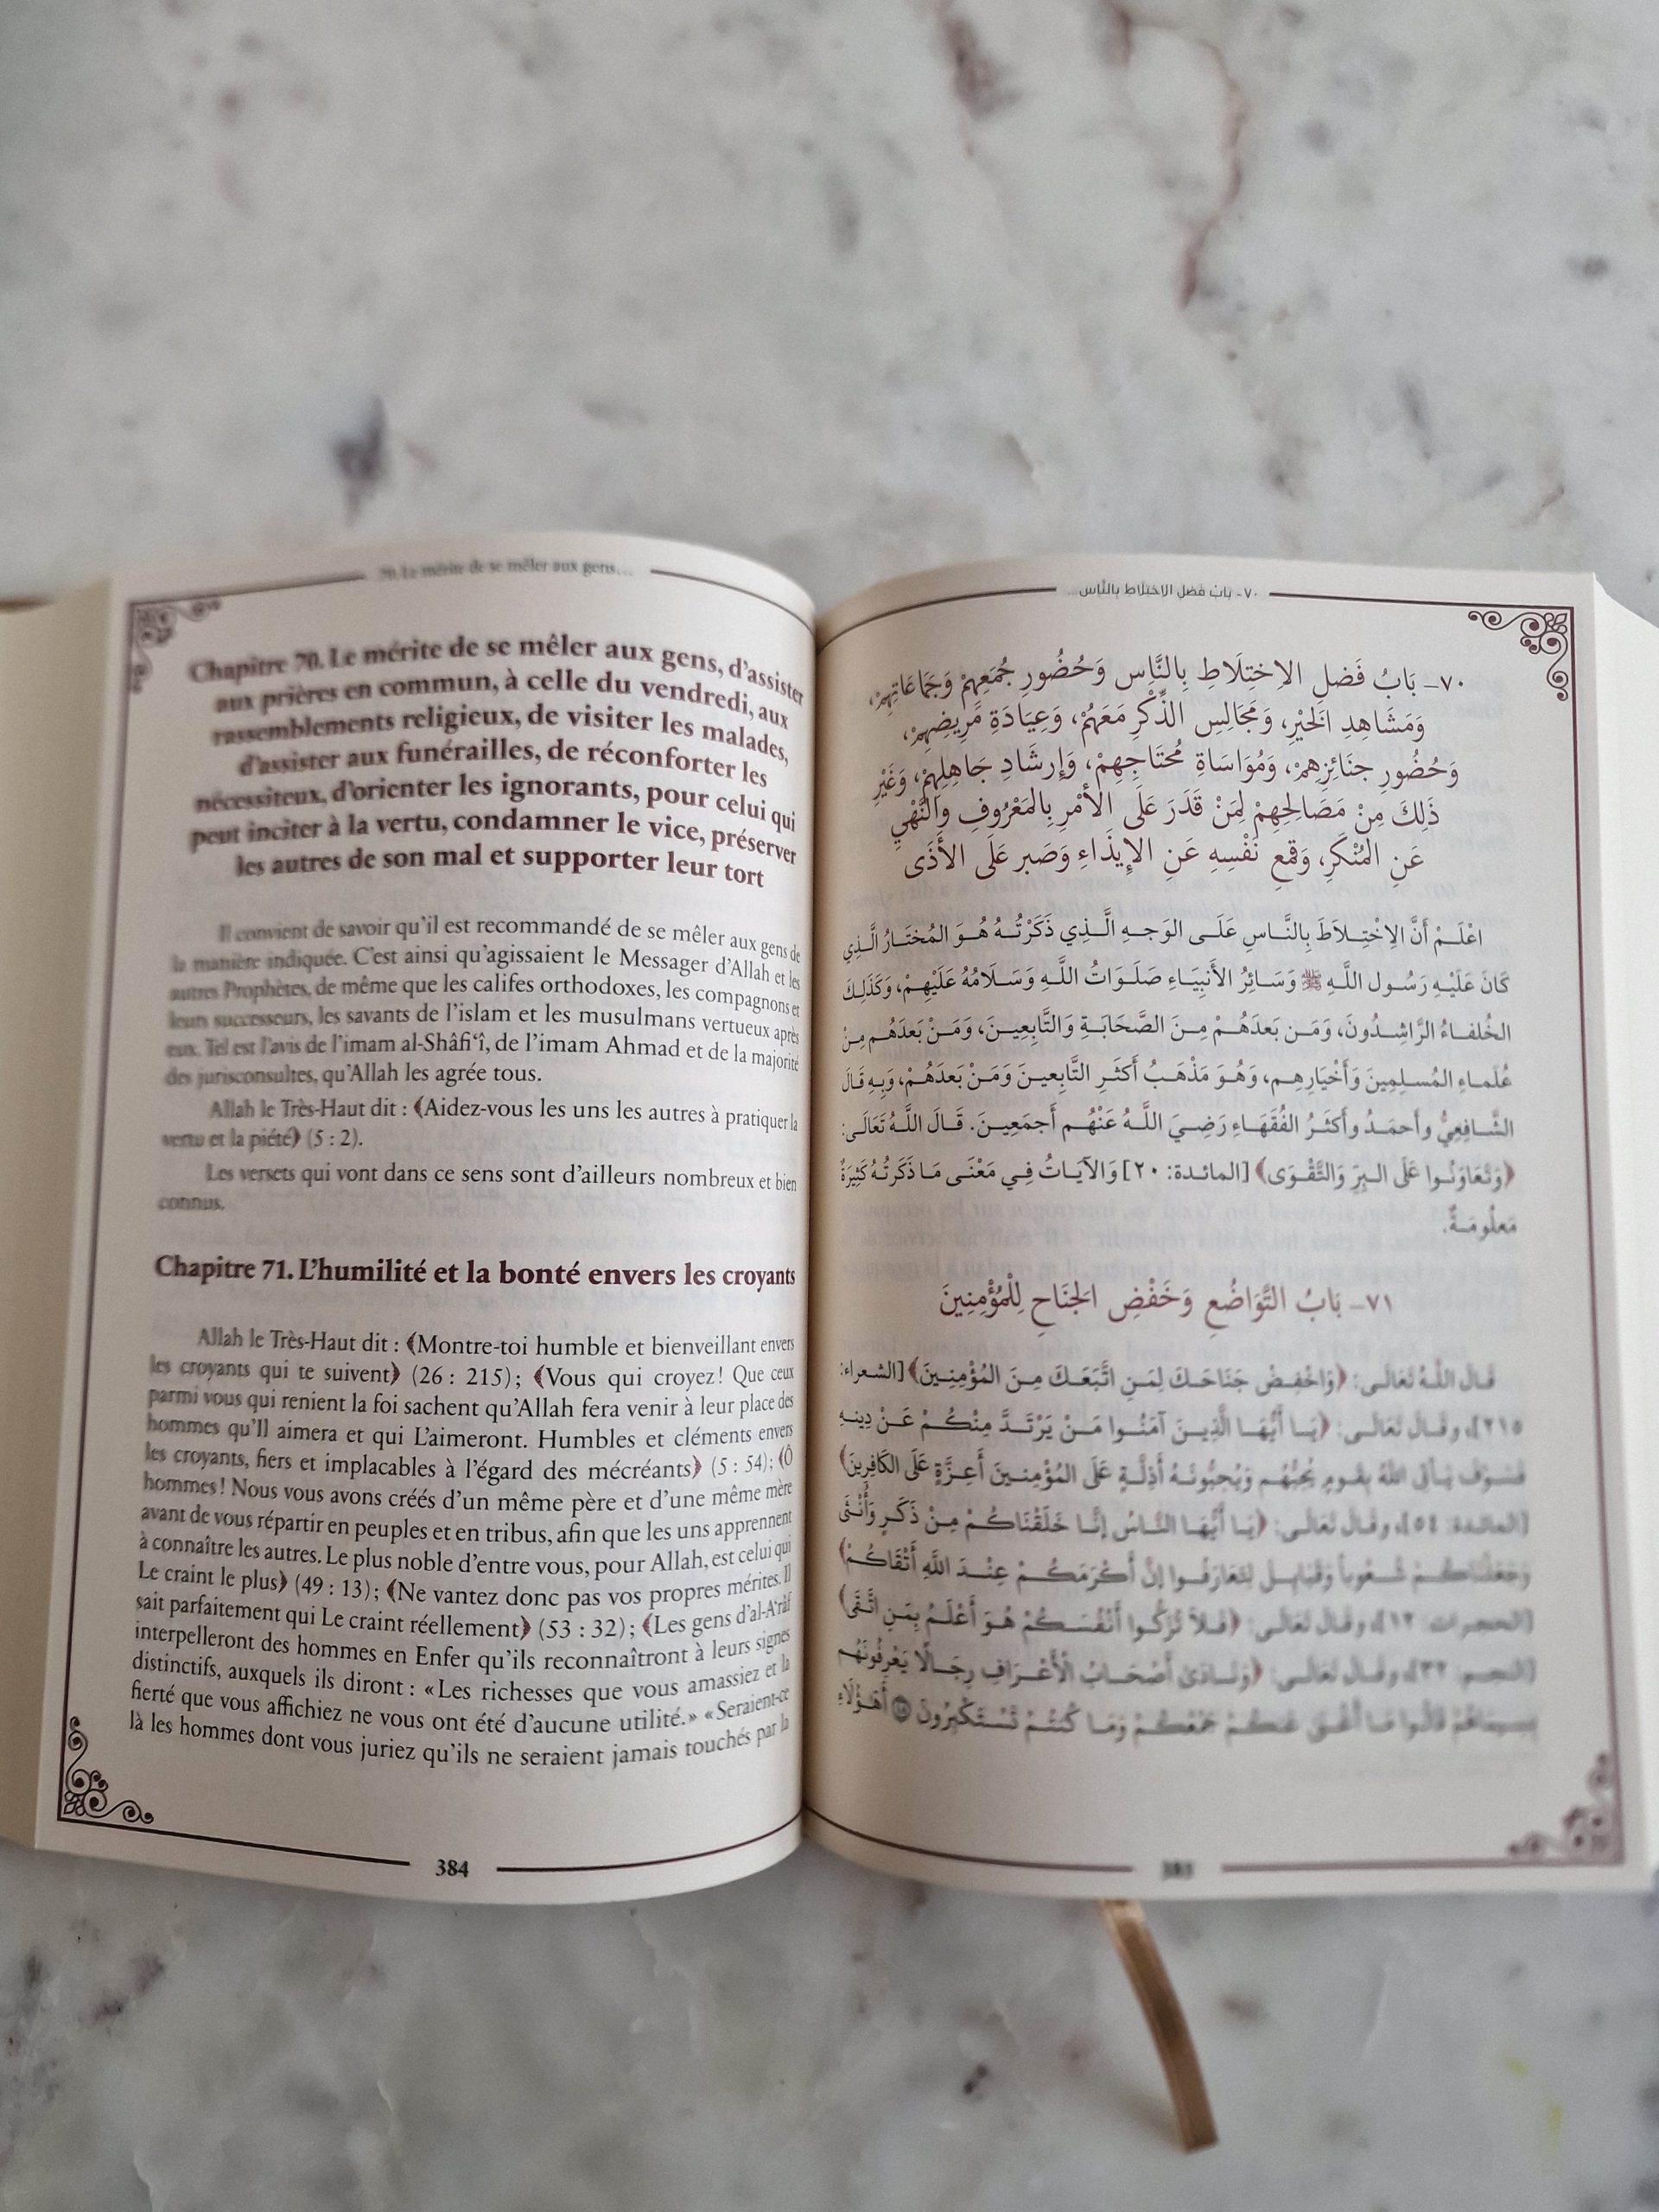 70. Le mérite de se mêler aux gens...
Chapitre 70. Le mérite de se mêler aux gens, d'assister
aux prières en commun, à celle du vendredi, aux
rassemblements religieux, de visiter les malades,
d'assister aux funérailles, de réconforter les
nécessiteux, d'orienter les ignorants, pour celui qui
peut inciter à la vertu, condamner le vice, préserver
les autres de son mal et supporter leur tort
Il convient de savoir qu'il est recommandé de se mêler aux gens de
la manière indiquée. C'est ainsi qu'agissaient le Messager d'Allah et les
autres Prophètes, de même que les califes orthodoxes, les compagnons et
leurs successeurs, les savants de l'islam et les musulmans vertueux après
eux. Tel est l'avis de l'imam al-Shâfi'î, de l'imam Ahmad et de la majorité
des jurisconsultes, qu'Allah les agrée tous.
Allah le Très-Haut dit : ﴾Aidez-vous les uns les autres à pratiquer la
vertu et la piété﴿ (5 : 2).
Les versets qui vont dans ce sens sont d'ailleurs nombreux et bien
connus.
Chapitre 71. L'humilité et la bonté envers les croyants
Allah le Très-Haut dit : ﴾Montre-toi humble et bienveillant envers
les croyants qui te suivent﴿ (26 : 215) ; ﴾Vous qui croyez ! Que ceux
parmi vous qui renient la foi sachent qu'Allah fera venir à leur place des
hommes qu'Il aimera et qui L'aimeront. Humbles et cléments envers
les croyants, fiers et implacables à l'égard des mécréants﴿ (5 : 54) ; ﴾Ô
hommes ! Nous vous avons créés d'un même père et d'une même mère
avant de vous répartir en peuples et en tribus, afin que les uns apprennent
à connaître les autres. Le plus noble d'entre vous, pour Allah, est celui qui
Le craint le plus﴿ (49 : 13) ; ﴾Ne vantez donc pas vos propres mérites. Il
sait parfaitement qui Le craint réellement﴿ (53 : 32) ; ﴾Les gens d'al-A'râf
interpelleront des hommes en Enfer qu'ils reconnaîtront à leurs signes
distinctifs, auxquels ils diront : « Les richesses que vous amassiez et la
fierté que vous affichiez ne vous ont été d'aucune utilité. » « Seraient-ce
là les hommes dont vous juriez qu'ils ne seraient jamais touchés par la
384
٧٠- بَابُ فَضلِ الاختِلَاطِ بِالنَّاس...
٧٠- بَابُ فَضلِ الاِختِلَاطِ بِالنَّاسِ وَحُضُورِ جُمَعِهِمْ وَجَمَاعَاتِهِمْ،
وَمَشَاهِدِ الخَيْرِ، وَمَجَالِسِ الذِّكْرِ مَعَهُمْ، وَعِيَادَةِ مَرِيضِهِمْ،
وَحُضُورِ جنَائِزِهِمْ، وَمُوَاسَاةِ مُحتَاجِهِمْ، وَإِرشَادِ جَاهِلِهِمْ، وَغَيْرِ
ذَلِكَ مِنْ مَصَالِحِهِمْ لِمَنْ قَدَرَ عَلَى الأَمْرِ بِالمَعْرُوفِ وَالنَّهْيِ
عَنِ المُنْكَرِ، وَقَمعِ نَفْسِهِ عَنِ الإِيذَاءِ وَصَبر عَلَى الأَذَى
اعْلَمْ أَنَّ الاِخْتِلاَطَ بِالنَّاسِ عَلَى الوَجهِ الَّذِي ذَكَرْتُهُ هُوَ المُختَارُ الَّذِي
كَانَ عَلَيْهِ رَسُول اللَّهِ ﷺ وَسَائِرُ الأَنبِيَاءِ صَلَوَاتُ اللَّهِ وَسَلَامُهُ عَلَيْهِمْ، وَكَذَلِكَ
الخُلفاءُ الرَّاشِدُونَ، وَمَن بَعدَهُمْ مِنَ الصَّحَابَةِ وَالتَّابِعِينَ، وَمَنْ بَعدَهُم مِنْ
عُلَماءِ المُسلِمِينَ وَأَخْيَارِهِم، وَهُوَ مَذْهَبُ أَكثَرِ التَّابِعينَ وَمَنْ بَعدَهُمْ، وَبِهِ قَالَ
الشَّافِعِيُّ وأَحمَدُ وأَكثَرُ الفُقَهَاءِ رَضِيَ اللَّهُ عَنْهُم أَجمَعِينَ. قَالَ اللَّهُ تَعَالَى:
﴿وَتَعَاوَنُوا عَلَى البِرِّ وَالتَّقْوَى﴾ [المائدة: ٢٠] وَالآيَاتُ فِي مَعْنَى مَا ذَكَرتُهُ كَثِيرَةٌ
مَعلُومَةٌ.
٧١- بَابُ التَّوَاضُعِ وَخَفْضِ الجَنَاحِ لِلْمُؤْمِنِينَ
قَالَ اللَّهُ تَعَالَى: ﴿وَاخْفِضْ جَنَاحَكَ لِمَنِ اتَّبَعَكَ مِنَ المُؤْمِنِينَ﴾ [الشعراء:
٢١٥]، وقَال تَعَالَى: ﴿يَا أَيُّهَا الَّذِينَ آمَنُوا مَنْ يَرْتَدَّ مِنْكُمْ عَنْ دِينِهِ
فَسَوْفَ يَأْتِي اللهُ بِقَومٍ يُحِبُّهُم وَيُحِبُّونَهُ أَذِلَّةٍ عَلَى المُؤْمِنِينَ أَعِزَّةٍ عَلَى الكَافِرِينَ﴾
[المائدة: ٥٤]، وقَال تَعَالَى: ﴿يَا أَيُّهَا النَّاسُ إِنَّا خَلَقْنَاكُمْ مِنْ ذَكَرٍ وَأُنْثَى
وَجَعَلْنَاكُمْ شُعُوباً وَقَبَائِلَ لِتَعَارَفُوا إِنَّ أَكْرَمَكُمْ عِنْدَ اللَّهِ أَتْقَاكُمْ﴾
[الحجرات: ١٣]، وقال تَعَالَى: ﴿فَلاَ تُزَكُّوا أَنْفُسَكُمْ هُوَ أَعْلَمُ بِمَنِ اتَّقَى﴾
[النجم: ٣٢]، وقَال تَعَالَى: ﴿وَنَادَى أَصْحَابُ الأَعْرَافِ رِجَالًا يَعْرِفُونَهُم
بِسِيمَاهُمْ قَالُوا مَا أَغْنَى عَنكُمْ جَمْعُكُمْ وَمَا كُنتُمْ تَسْتَكْبِرُونَ ٤٨ أَهَؤُلَاءِ